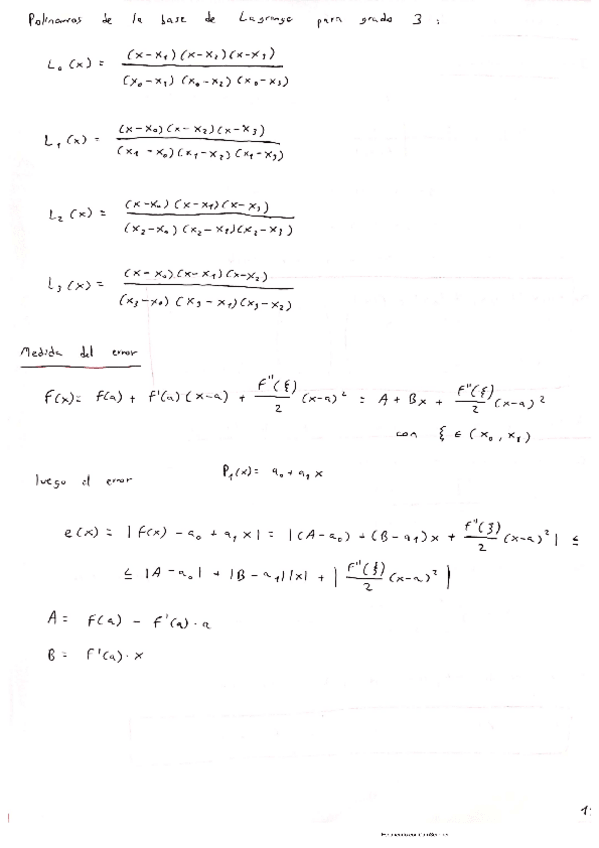 Polinomios de la base de Lagrange para grado 3:
L₀(x) = (x-x₁)(x-x₂)(x-x₃) / (x₀-x₁)(x₀-x₂)(x₀-x₃)
L₁(x) = (x-x₀)(x-x₂)(x-x₃) / (x₁-x₀)(x₁-x₂)(x₁-x₃)
L₂(x) = (x-x₀)(x-x₁)(x-x₃) / (x₂-x₀)(x₂-x₁)(x₂-x₃)
L₃(x) = (x-x₀)(x-x₁)(x-x₂) / (x₃-x₀)(x₃-x₁)(x₃-x₂)
Medida del error
f(x) = f(a) + f'(a)(x-a) + f''(ξ)/2 (x-a)² = A + Bx + f''(ξ)/2 (x-a)²
con ξ ∈ (x₀, x₁)
luego el error P₁(x) = a₀ + a₁x
e(x) = |f(x) - a₀ + a₁x| = |(A-a₀) + (B-a₁)x + f''(ξ)/2 (x-a)²| ≤
≤ |A-a₀| + |B-a₁||x| + |f''(ξ)/2 (x-a)²|
A = f(a) - f'(a)·a
B = f'(a)·x